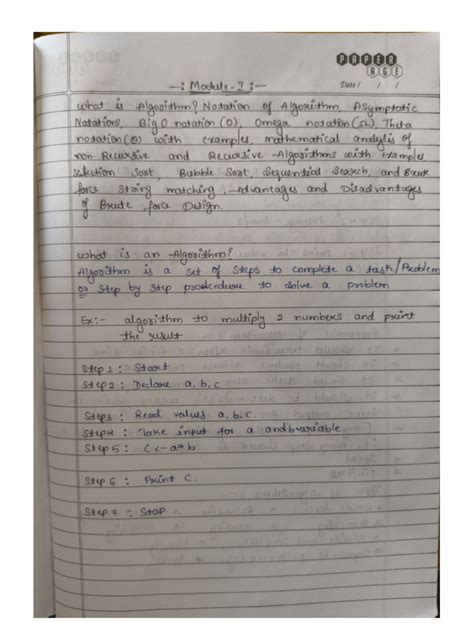 PAPER
AGE
Date / / /
—: Module-I :—
what is Algorithm? Notation of Algorithm Asymptotic
Notations, Big O notation (O), Omega notation (Ω), Theta
notation (Θ) with examples, mathematical analysis of
non-Recursive and Recursive -Algorithms with examples
selection Sort, Bubble Sort, Sequential Search, and Brute
force String matching, -Advantages and Disadvantages
of Brute force Design.
what is an -Algorithm?
Algorithm is a set of steps to complete a task/Problem
or Step by Step procedure to solve a problem
Ex:- algorithm to multiply 2 numbers and print
the result
Step 1 : Start
Step 2 : Declare a, b, c
Step 3 : Read values a, b, c.
Step 4 : Take input for a and b variable
Step 5 : C <- a*b
Step 6 : Print C.
Step 7 : Stop